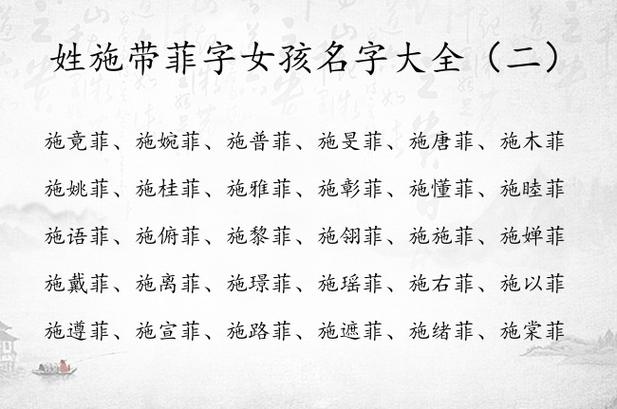 姓施带菲字女孩名字大全（二）
施竟菲、施婉菲、施普菲、施旻菲、施唐菲、施木菲
施姚菲、施桂菲、施雅菲、施彰菲、施懂菲、施睦菲
施语菲、施俯菲、施黎菲、施翎菲、施施菲、施婵菲
施戴菲、施离菲、施璟菲、施瑶菲、施右菲、施以菲
施遵菲、施宣菲、施路菲、施遮菲、施绪菲、施棠菲